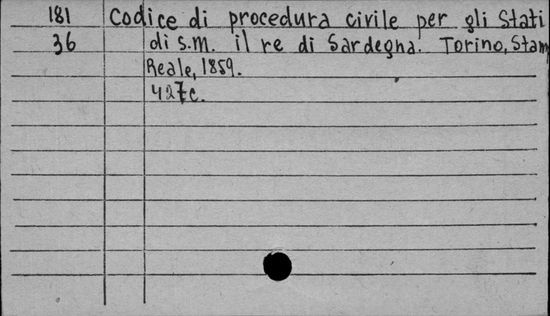 181 Codice di procedura civile per gli Stati
36 di S.M. il re di Sardegna. Torino, Stam
Reale, 1859.
427c.